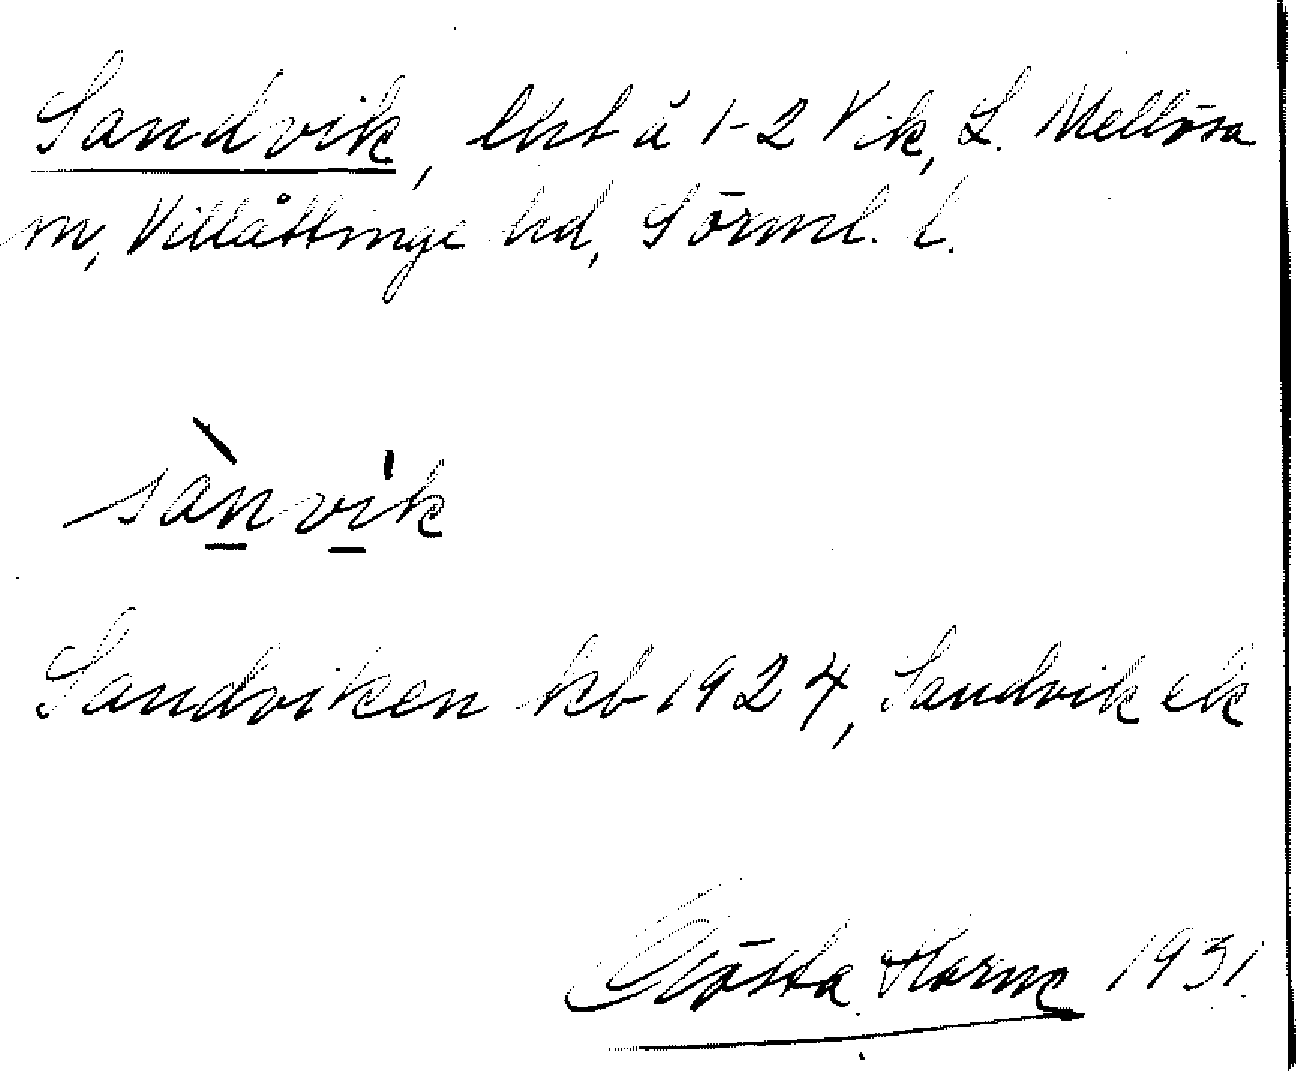 Sandvik, lht å 1-2 Vik, L. Mellösa
sn, Villåttinge hd, Sörml. l.
sànvi̍k
Sandviken kb 1924, Sandvik ek
Gösta Horne 1931.